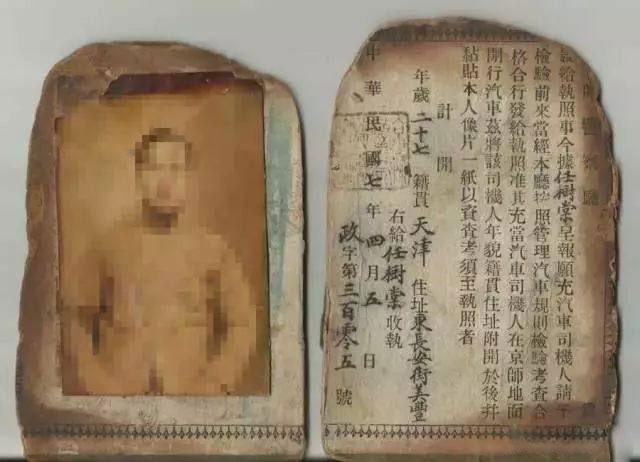 警察廳
給執照事今據任樹棠呈報願充汽車司機人請予
檢驗前來當經本廳按照管理汽車規則檢驗考查合
格合行發給執照准其充當汽車司機人在京師地面
開行汽車茲將該司機人年貌籍貫住址附開於後幷
黏貼本人像片一紙以資查考須至執照者
計開
年歲二十七 籍貫天津 住址東長安街美豐
右給任樹棠收執
中華民國七年四月五日
政字第三百零五號